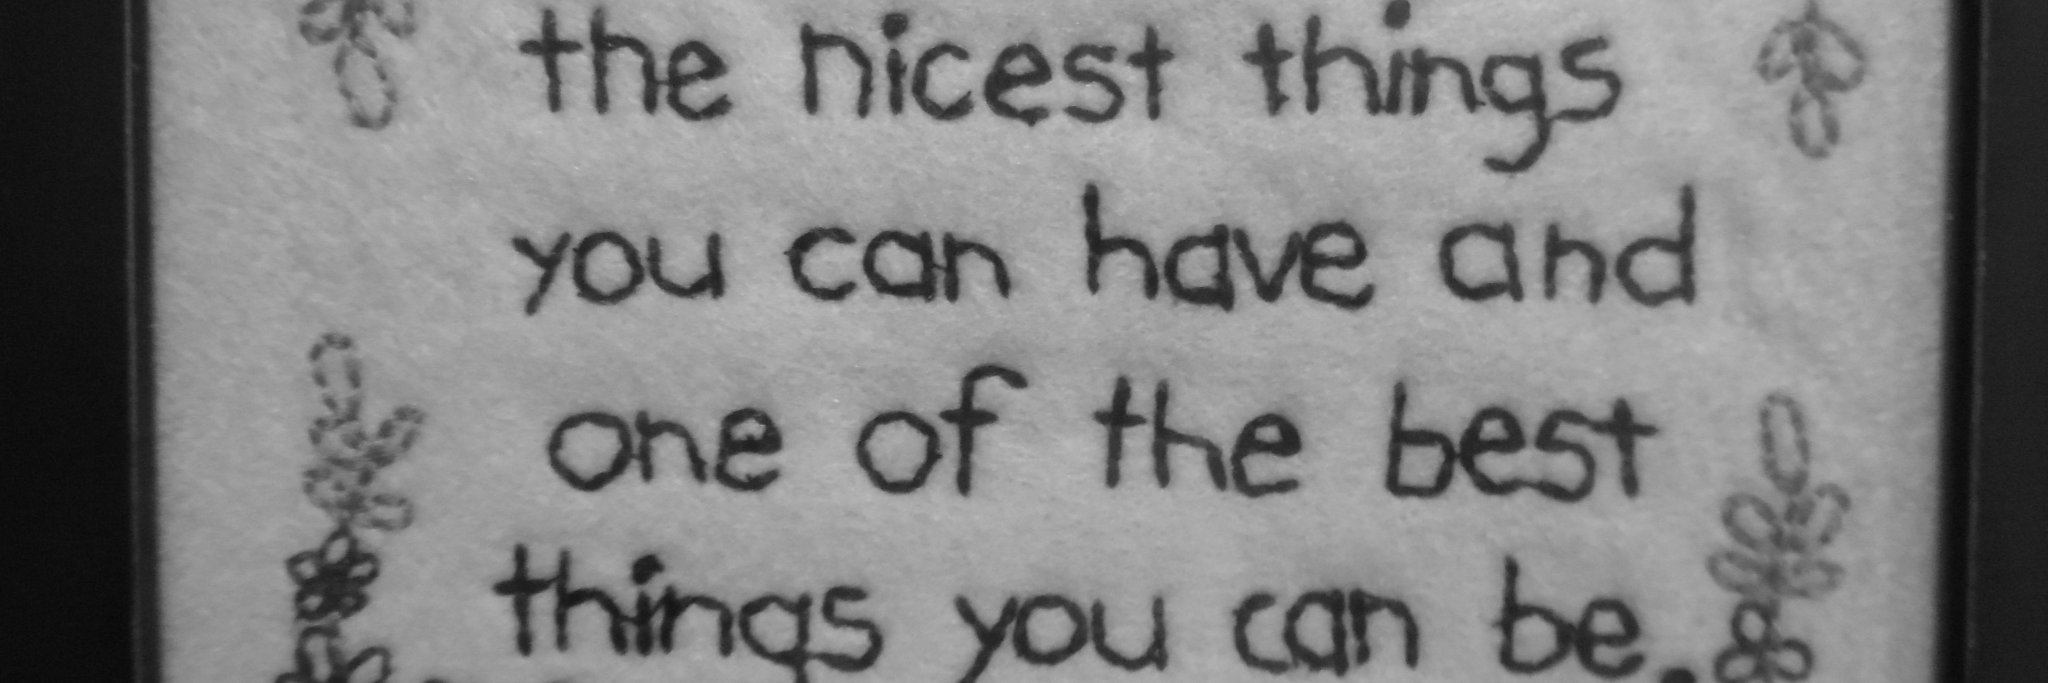 the nicest things
you can have and
one of the best
things you can be.